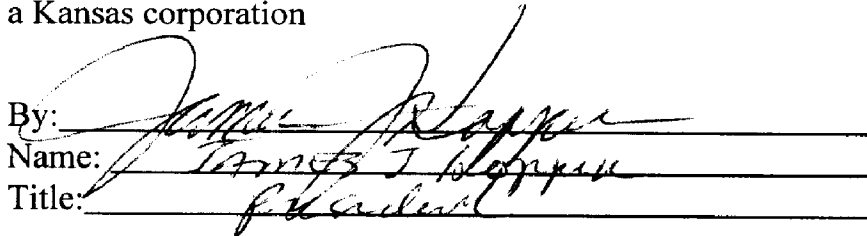 a Kansas corporation
By: James J
Name: James J
Title: President